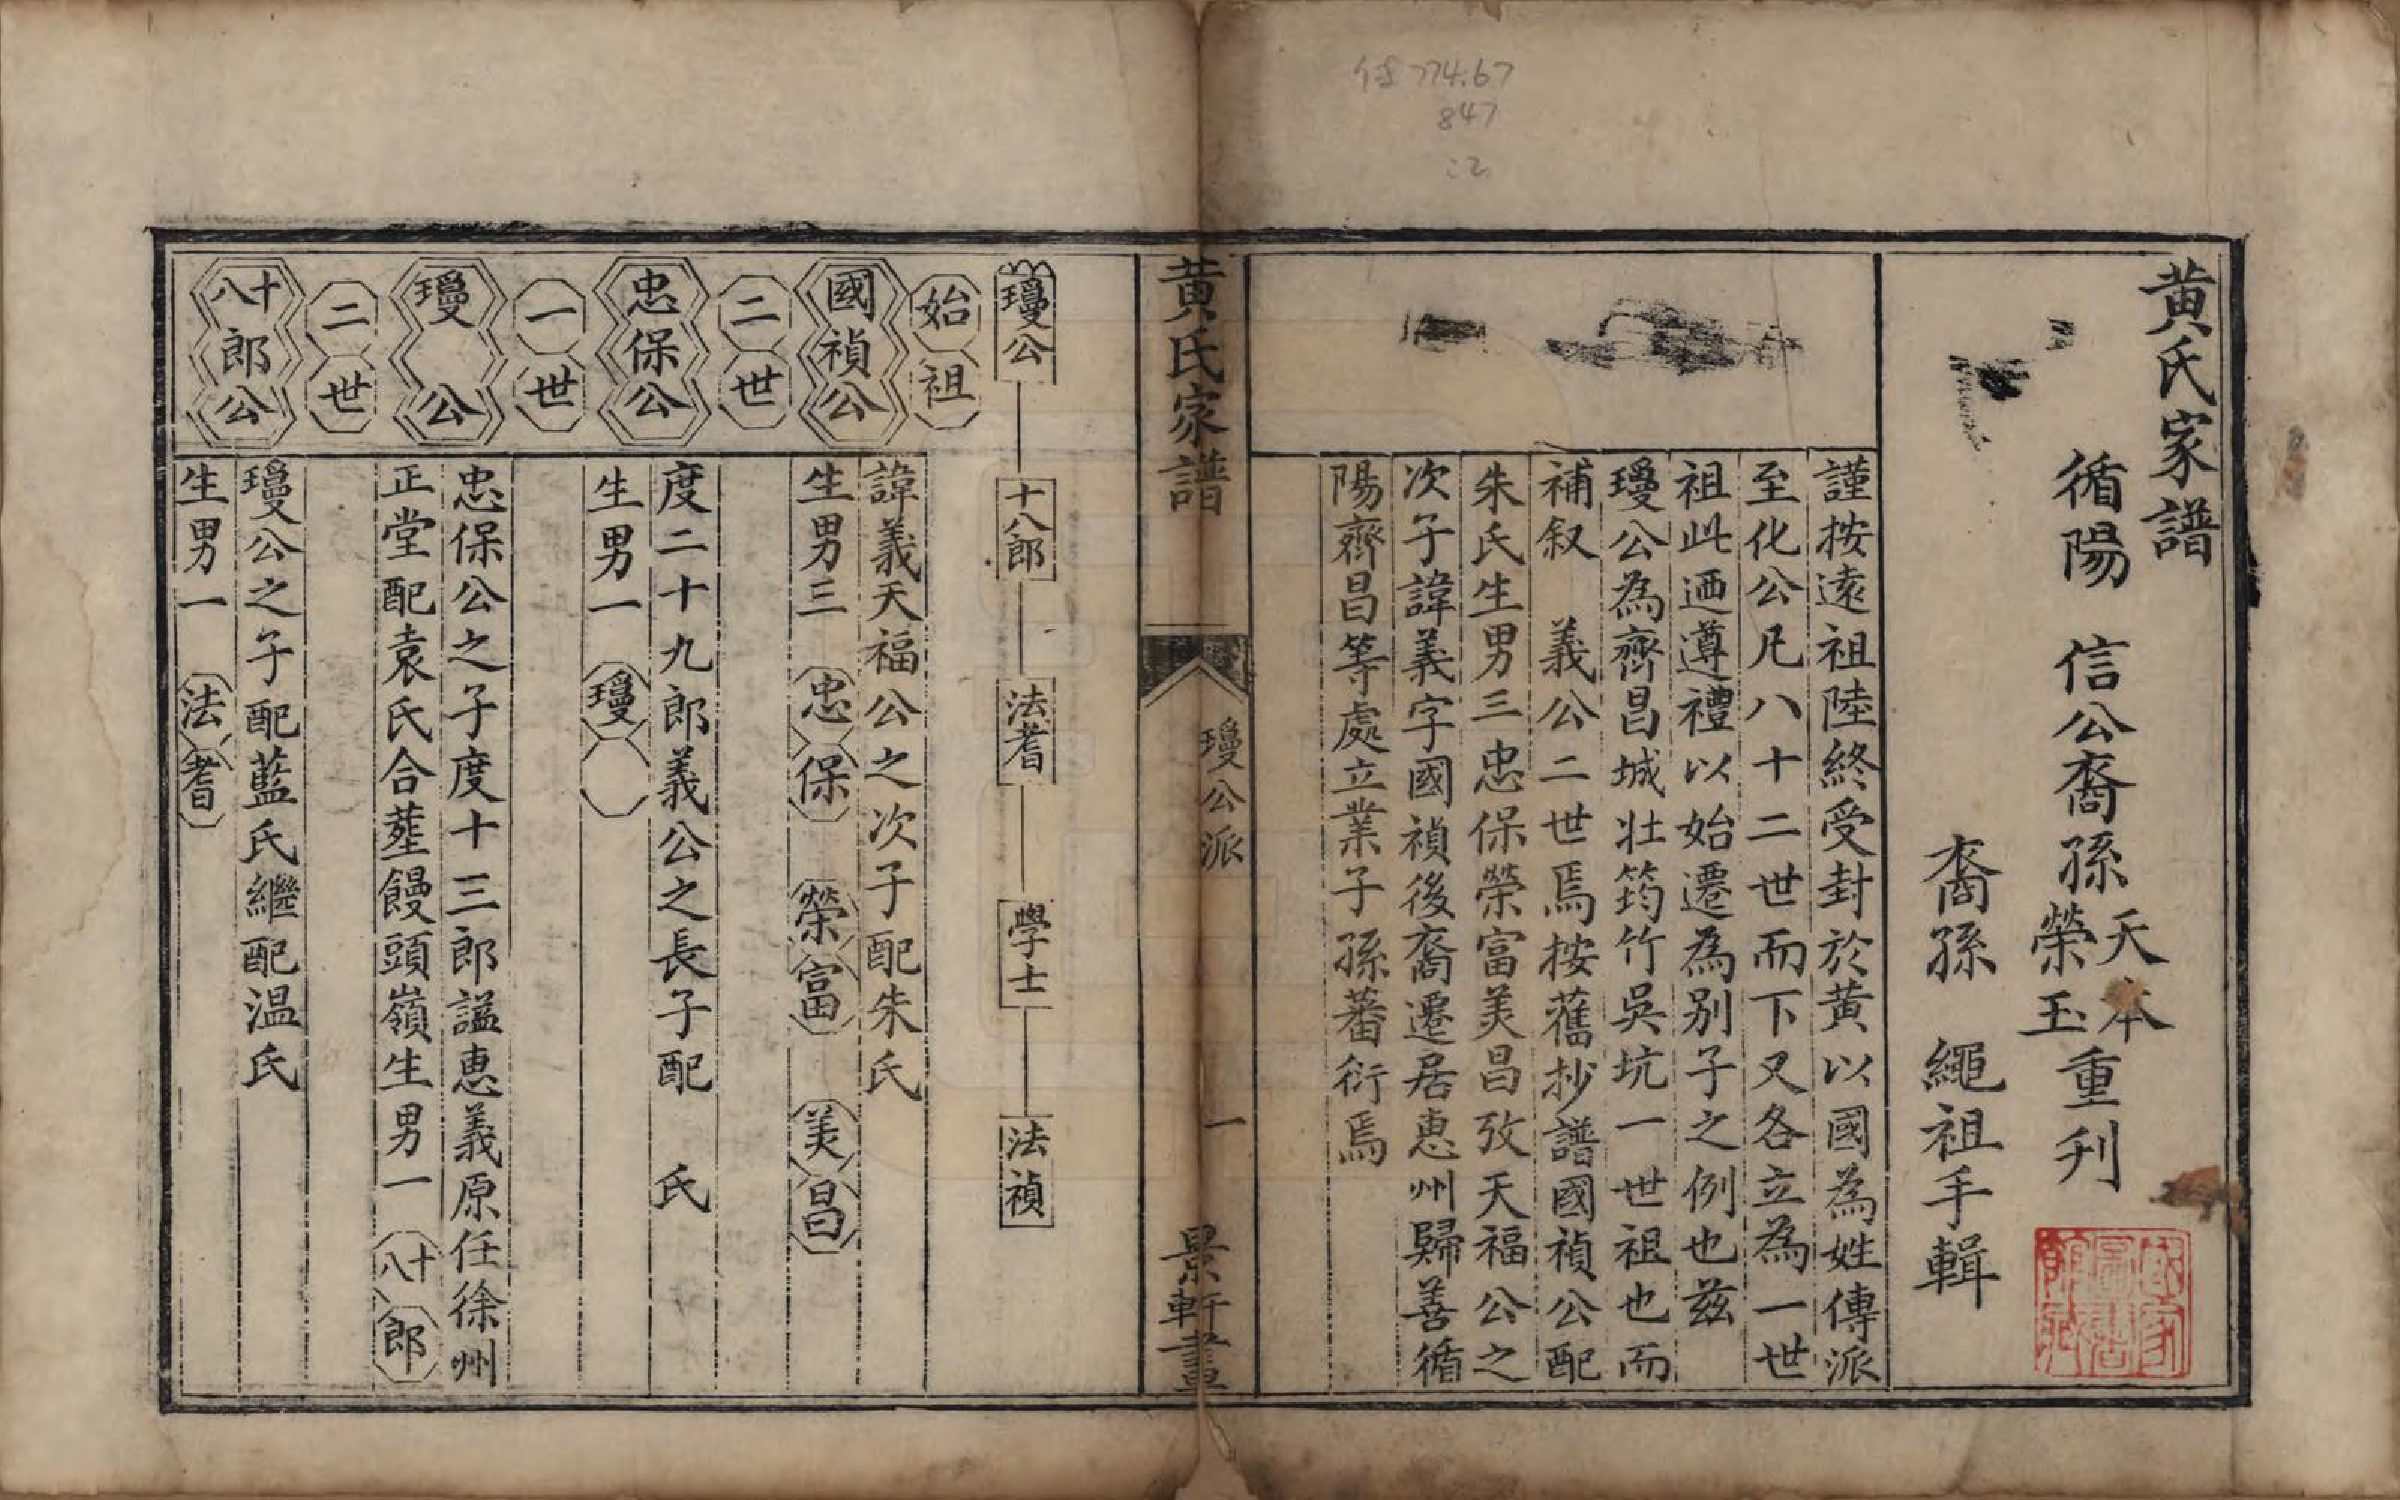 黄氏家譜
循陽 信公裔孫天本榮玉重刋
裔孫 繩祖手輯
謹按逺祖陸終受封於黃以國為姓傳派
至化公凡八十二世而下又各立為一世
祖此迺遵禮以始遷為別子之例也兹
瓊公為齊昌城壯筠竹吳坑一世祖也而
補叙 義公二世焉按舊抄譜國禎公配
朱氏生男三忠保榮富美昌攷天福公之
次子諱義字國禎後裔遷居惠州歸善循
陽齊昌等處立業子孫蕃衍焉
黄氏家譜
瓊公派
一
景軒畫
瓊公
十八郎
法耆
學士
法禎
始祖
國禎公
諱義天福公之次子配朱氏
生男三 忠保 榮富 美昌
二世
忠保公
度二十九郎義公之長子配 氏
生男一 瓊
一世
瓊公
忠保公之子度十三郎謚惠義原任徐州
正堂配袁氏合塟饅頭嶺生男一 十八郎
二世
十八郎公
瓊公之子配藍氏繼配温氏
生男一 法耆
774.67
847
:2